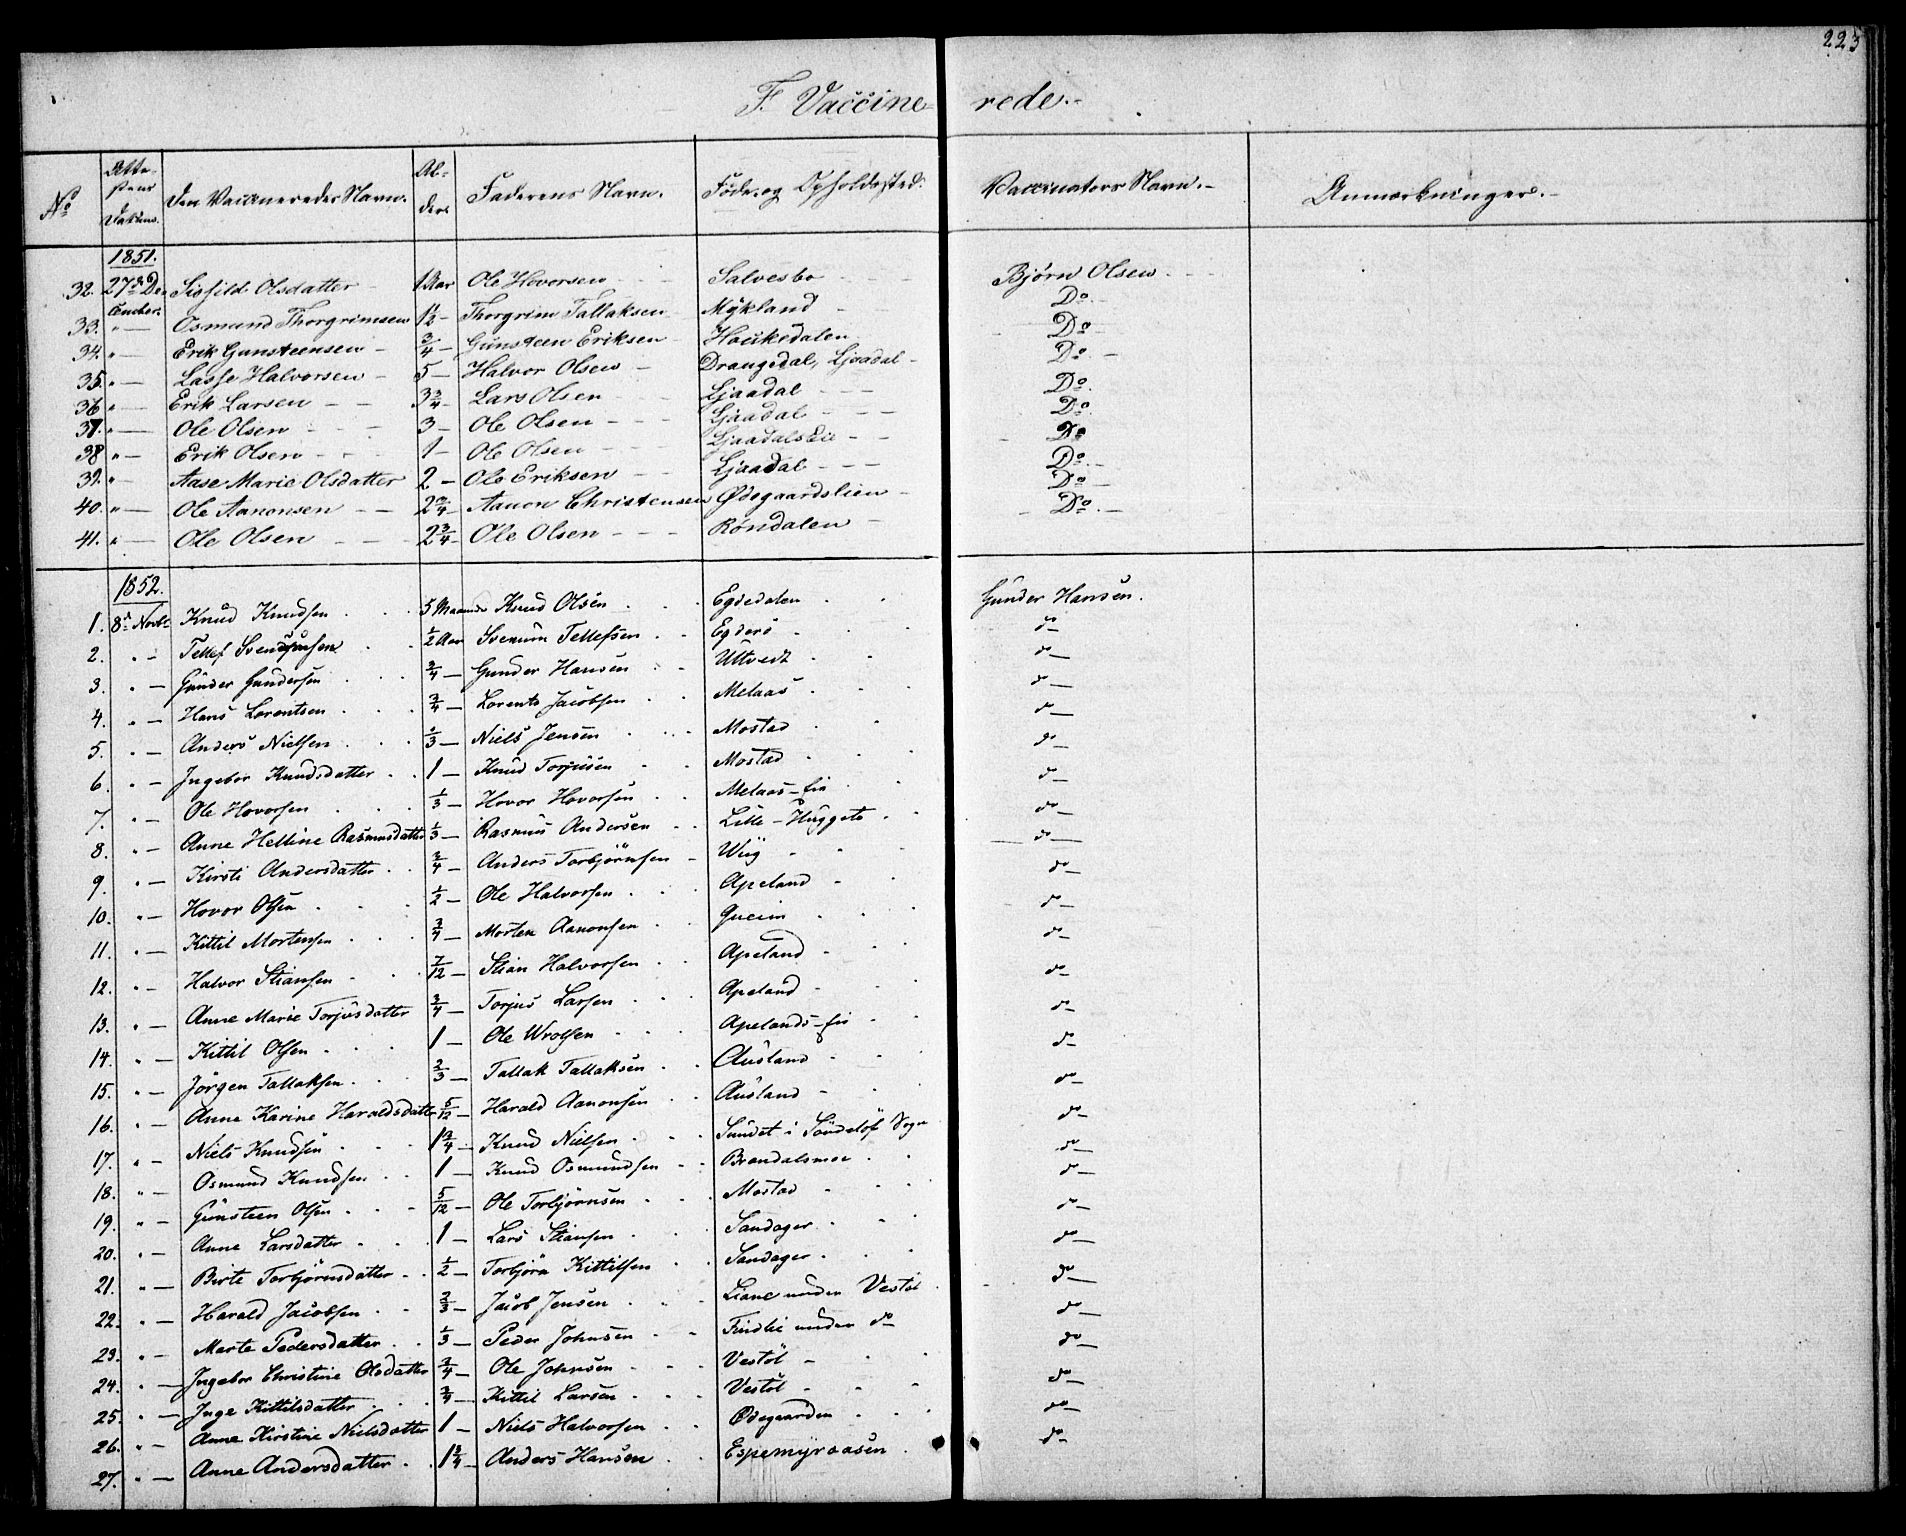 223
F. Vaccine- rede.-
No | Atte-stens Datum. | Den Vaccineredes Navn. | Al-der | Faderens Navn. | Føde- og Opholdssted. | Vaccinators Navn.- | Anmærkninger.-
1851.
32. 27de De- Sigfild Olsdatter - 1 Aar Ole Hovorsen - Salvesbo - Bjørn Olsen -
cember.
33. " — Osmund Thorgrimsen 1½ - Thorgrim Tallaksen - Mykland - Do. -
34. " — Erik Gunsteensen - ¾ - Gunsteen Eriksen - Houkedalen - Do -
35. " — Lasse Halvorsen - 5 - Halvor Olsen - Drangedal, Ljaadal - Do. -
36. " — Erik Larsen - - 3¾ - Lars Olsen Ljaadal - - Do.
37. " — Ole Olsen - - 3 - Ole Olsen - - Ljaadal - - Do.
38. " — Erik Olsen - - 1 - Ole Olsen - Ljaadalseie - - Do
39. " — Aase Marie Olsdatter 2 - Ole Eriksen - - Ljaadal - - - Do. -
40. " — Ole Aanonsen - - 2¾ - Aanon Christensen Ødegaardslien - Do -
41. " — Ole Olsen - - - 2¾ - Ole Olsen - - - Røndalen - Do. -
1852.
1. 8de Novbr Knud Knudsen . . 5 Maaneder Knud Olsen . . Egdedalen . . Gunder Hansen.
2. " - Tellef Svenumsen . . ½ Aar Svenum Tellefsen . - Egderø - . do
3. " — Gunder Gundersen . . ¾ — Gunder Hansen . . Ultvedt . . do
4. " — Hans Lorentsen . . ¾ — Lorents Jacobsen . . Melaas . . do
5. " — Anders Nielsen . . ⅓ — Niels Jensen . . Mostad . . do
6. " — Ingebor Knudsdatter . . 1 — Knud Torjusen . . Mostad . . do
7. " — Ole Hovorsen . . ⅓ — Hovor Hovorsen . . Melaas-eie . do
8. " — Anne Helline Rasmusdatter ⅓ — Rasmus Andersen . . Lille-Huggeto . . do
9. " — Kirsti Andersdatter . . ¾ — Anders Torbjørnsen - Wiig - - do
10. " — Hovor Olsen . . ½ — Ole Halvorsen . . Apeland - . do
11. " — Kittil Mortensen . . ¾ — Morten Aanonsen . . . . do
12. " — Halvor Stiansen - . 7/12 — Stian Halvorsen . . Apeland - . do
13. " — Anne Marie Torjusdatter ¾ — Torjus Larsen . . Apeland - . do
14. " — Kittil Olsen . . 1 — Ole Wrolsen . . Apelands-eie . . do
15. " — Jörgen Tallaksen . . ⅔ — Tallak Tallaksen . . Ausland . . do
16. " — Anne Karine Haraldsdatter 5/12 — Harald Aanonsen . . Ausland - . do
17. " — Niels Knudsen . . 1¾ - Knud Nielsen . . Sundet i Söndeløf Sogn do
18. " — Osmund Knudsen . . 1 — Knud Osmundsen . . Brændalsmoe . . do
19. " — Gunsteen Olsen . . 5/12 — Ole Torbjørnsen . . Mostad - . do
20. " — Anne Larsdatter . . 1 — Lars Stiansen . . Sandager . . do
21. " — Birte Torbjörnsdatter . . ½ — Torbjörn Kittilsen . . Sandager . . do
22. " — Harald Jacobsen . . ⅔ — Jacob Jensen . . Liane under Vestöl . do
23. " — Marte Pedersdatter . . ⅓ — Peder Johnsen . . under do do
24. " — Ingebor Christine Olsdatter ¾ — Ole Johnsen . . Vestöl - . do
25. " — Inge Kittilsdatter . . ¾ — Kittil Larsen . . Vestöl . . do
26. " — Anne Kirstine Nielsdatter 1 — Niels Halvorsen . . Ødegaarden . . do
27. " — Anne Andersdatter . . 1¾ - Anders Hansen . . Espemyraasen . do